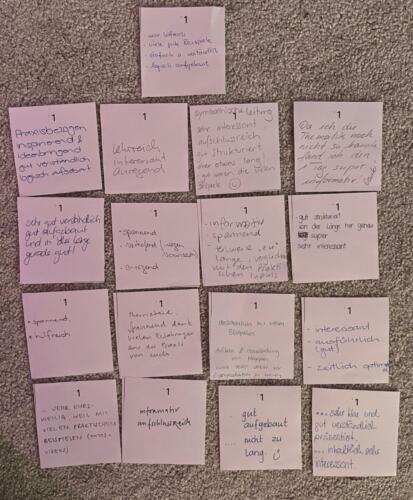 1
war hilfreich
- viele gute Beispiele
- einfach u. verständlich
- logisch aufgebaut
1
Praxisbezogen
inspirierend &
ideenbringend
gut verständlich
logisch aufgebaut
1
Lehrreich
interessant
Anregend
1
sympathische Leitung
sehr interessant
aufschlussreich
gut strukturiert
eher etwas lang
gut waren die vielen
1
Da ich die
Thematik noch
nicht so kannte
fand ich den
1 Tag super
informativ
1
sehr gut verständlich
gut aufgebaut
und in der Länge
gerade gut!
1
- spannend
- anregend
1
- informativ
- spannend
- teilweise "zu"
lange,
mit den
Inputs
1
- gut strukturiert
von der Länge her genau
super
sehr interessant
1
- spannend
- hilfreich
1
Spannend dank
vielen Erfahrungen
aus der Praxis
von euch
1
mit vielen
Beispielen
1
- interessant
- ausführlich
(gut)
- zeitlich optimal
1
- SEHR KURZ-
WEILIG, WEIL MIT
VIELEN PRAKTISCHEN
BEISPIELEN (FOTOS-
VIDEOS)
1
informativ
aufschlussreich
1
... gut
aufgebaut
... nicht zu
lang
1
... sehr klar und
gut verständlich
präsentiert.
... inhaltlich sehr
interessant.